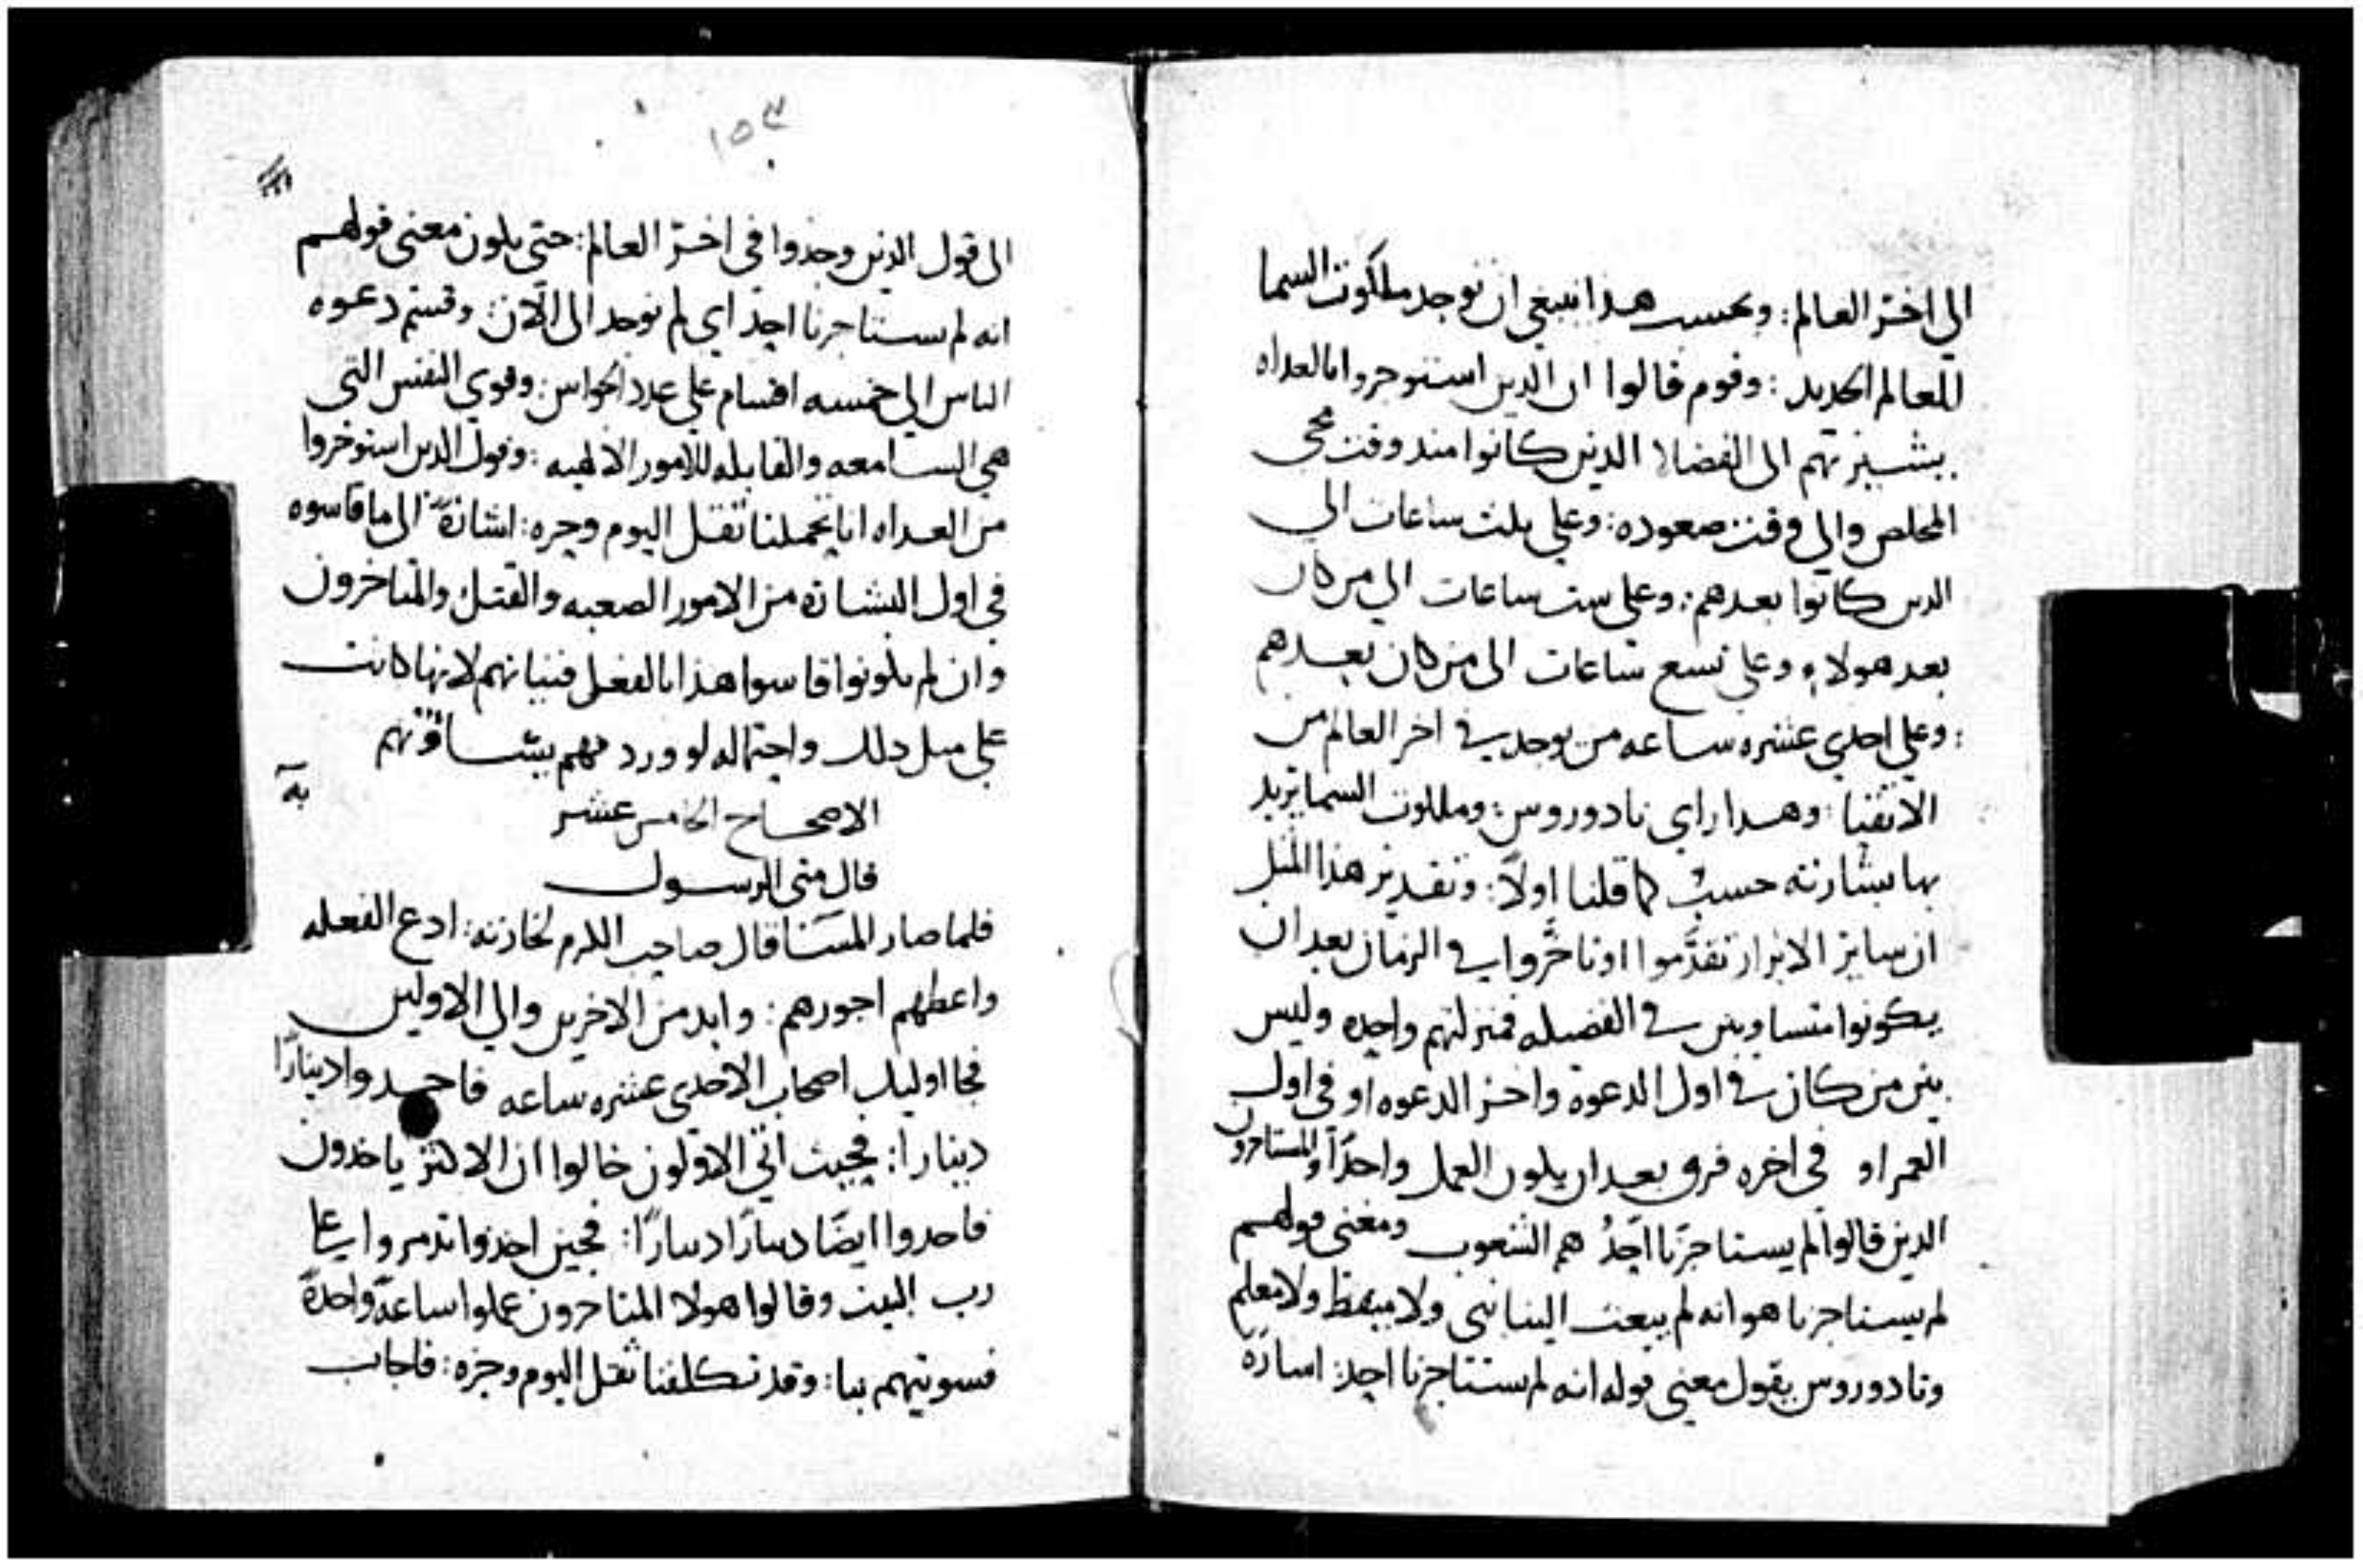 الي اخر العالم : وبحسب هذا ينبغي ان توجد ملكوت السما
للعالم الجديد : وقوم قالوا ان الدين استوجروا بالغداه
يشير بهم الى الفضلا الذين كانوا منذ وقت مجي
المخلص والي وقت صعوده : وعلي ثلث ساعات الي
الدين كانوا بعدهم : وعلي ست ساعات الي من كان
بعد هولاء وعلي تسع ساعات الى من كان بعدهم
: وعلي احدي عشره ساعه من يوجد في اخر العالم من
الاتقيا : وهدا راي تادوروس : وملكوت السما يريد
بها بشارته حسب كما قلنا اولاً : وتقدير هذا المثل
ان ساير الابرار تقدَّموا او تاخَّروا في الزمان بعد ان
يكونوا متساويين في الفضيله فمنزلتهم واحده وليس
بين من كان في اول الدعوة واخر الدعوه او في اول
العمر او في اخره فرق بعد ان يكون العمل واحدًا والمستاجرون
الذين قالوا لم يستاجرنا احدُ هم الشعوب ومعنى قولهم
لم يستاجرنا هو انه لم يبعث الينا نبي ولا ميقظ ولا معلم
وتادوروس يقول معني قوله انه لم يستاجرنا احد : اسارة
١٥٣
الى قول الذين وجدوا في اخر العالم : حتى يكون معنى قولهم
انه لم يستاجرنا احد اي لم نوجد الى الآن : وقسم دعوه
الناس الي خمسه اقسام على عدد الحواس : وقوي النفس التي
هي السامعه والقابله للامور الالهيه : وقول الدين استوخروا
من الغداه انا تحملنا ثقل اليوم وحره : اشارةً الى ما قاسوه
في اول البشاره من الامور الصعبه والقتل والمتاخرون
وان لم يكونوا قاسوا هذا بالفعل فنياتهم لانها كانت
على مثل دلك واحتماله لو ورد فهم يساوونهم
الاصحاح الخامس عشر
قال متى الرسول
فلما صار المسَا قال صاحب الكرم لخازنه : ادع الفعله
واعطهم اجورهم : وابد من الاخرين والي الاولين
فجا اوليك اصحاب الاحدى عشره ساعه فاخدوا دينارًا
دينارا : فحيث اتي الاولون خالوا ان الاكثر ياخدون
فاخدوا ايضًا دينارًا دينارًا : فحين اخذوا تدمروا علي
رب البيت وقالوا هولا المتاخرون عملوا ساعةً واحدةً
فسويتهم بنا : وقد تكلفنا ثقل اليوم وحره : فاجاب